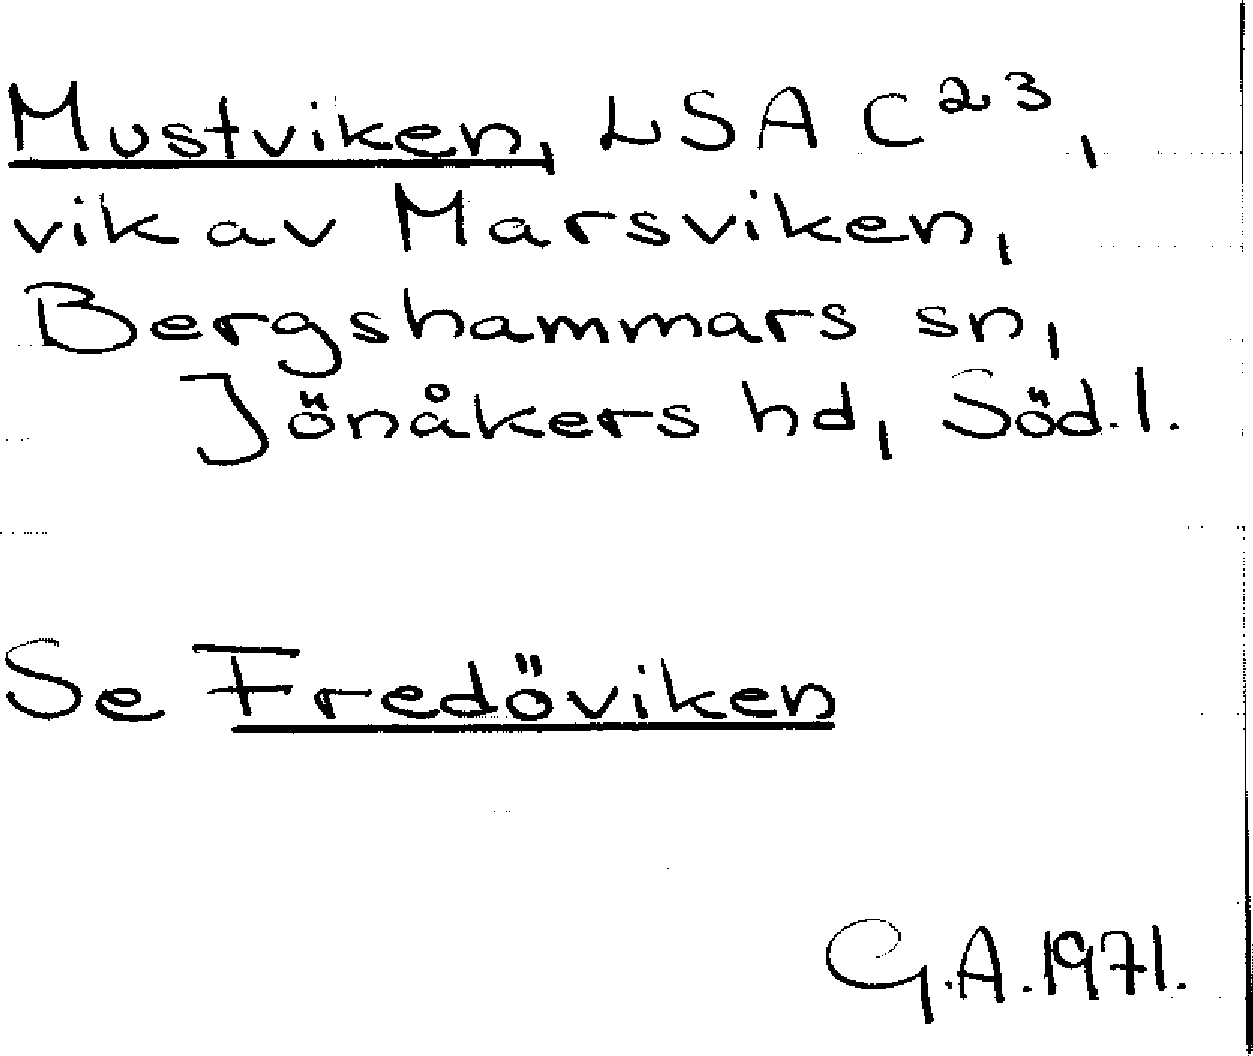 Mustviken, LSA C²³,
vik av Marsviken,
Bergshammars sn,
Jönåkers hd, Söd.l.
Se Fredöviken
G.A. 1971.